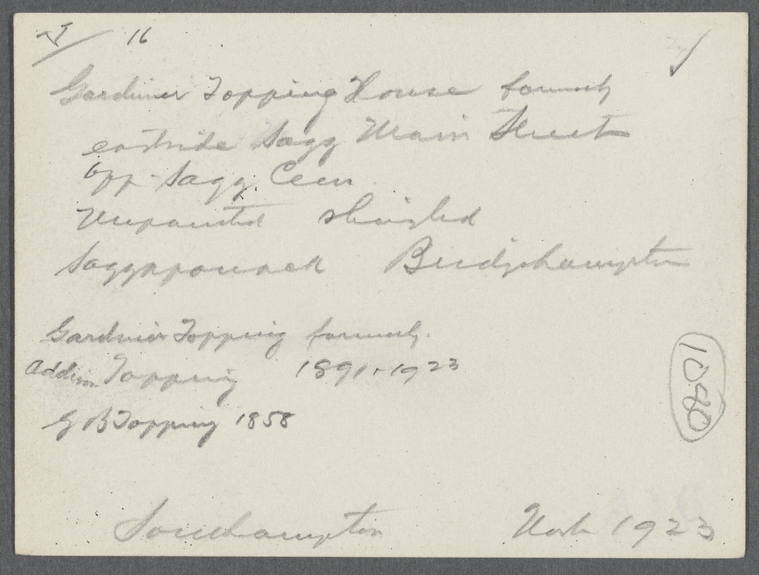 I 16
Gardiner Topping House formerly
eastside Sagg Main Street
opp. Sagg. Cem
Unpainted shingled
Saggaponack Bridgehampton
Gardiner Topping formerly.
Addison Topping 1891-1923
G B Topping 1858
1080
Southampton 1923